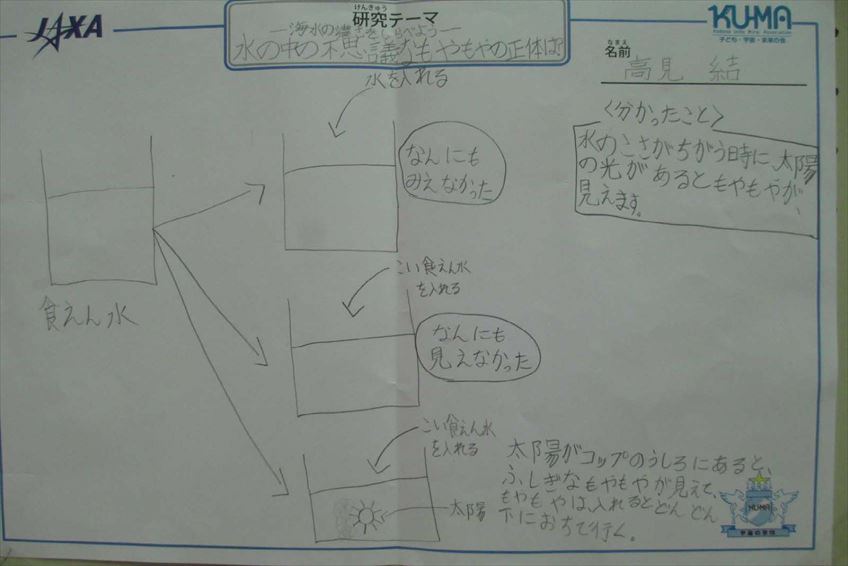 JAXA
けんきゅう
研究テーマ
―海水の濃さをしらべよう―
水の中の不思議なもやもやの正体は?
KU-MA
子ども・宇宙・未来の会
なまえ
名前
高見 結
<分かったこと>
水のこさがちがう時に、太陽
の光があるともやもやが、
見えます。
食えん水
水を入れる
なんにも
みえなかった
こい食えん水
を入れる
なんにも
見えなかった
こい食えん水
を入れる
太陽
太陽がコップのうしろにあると、
ふしぎなもやもやが見えて、
もやもやは、入れるとどんどん
下におちて行く。
KUMA
宇宙の学校